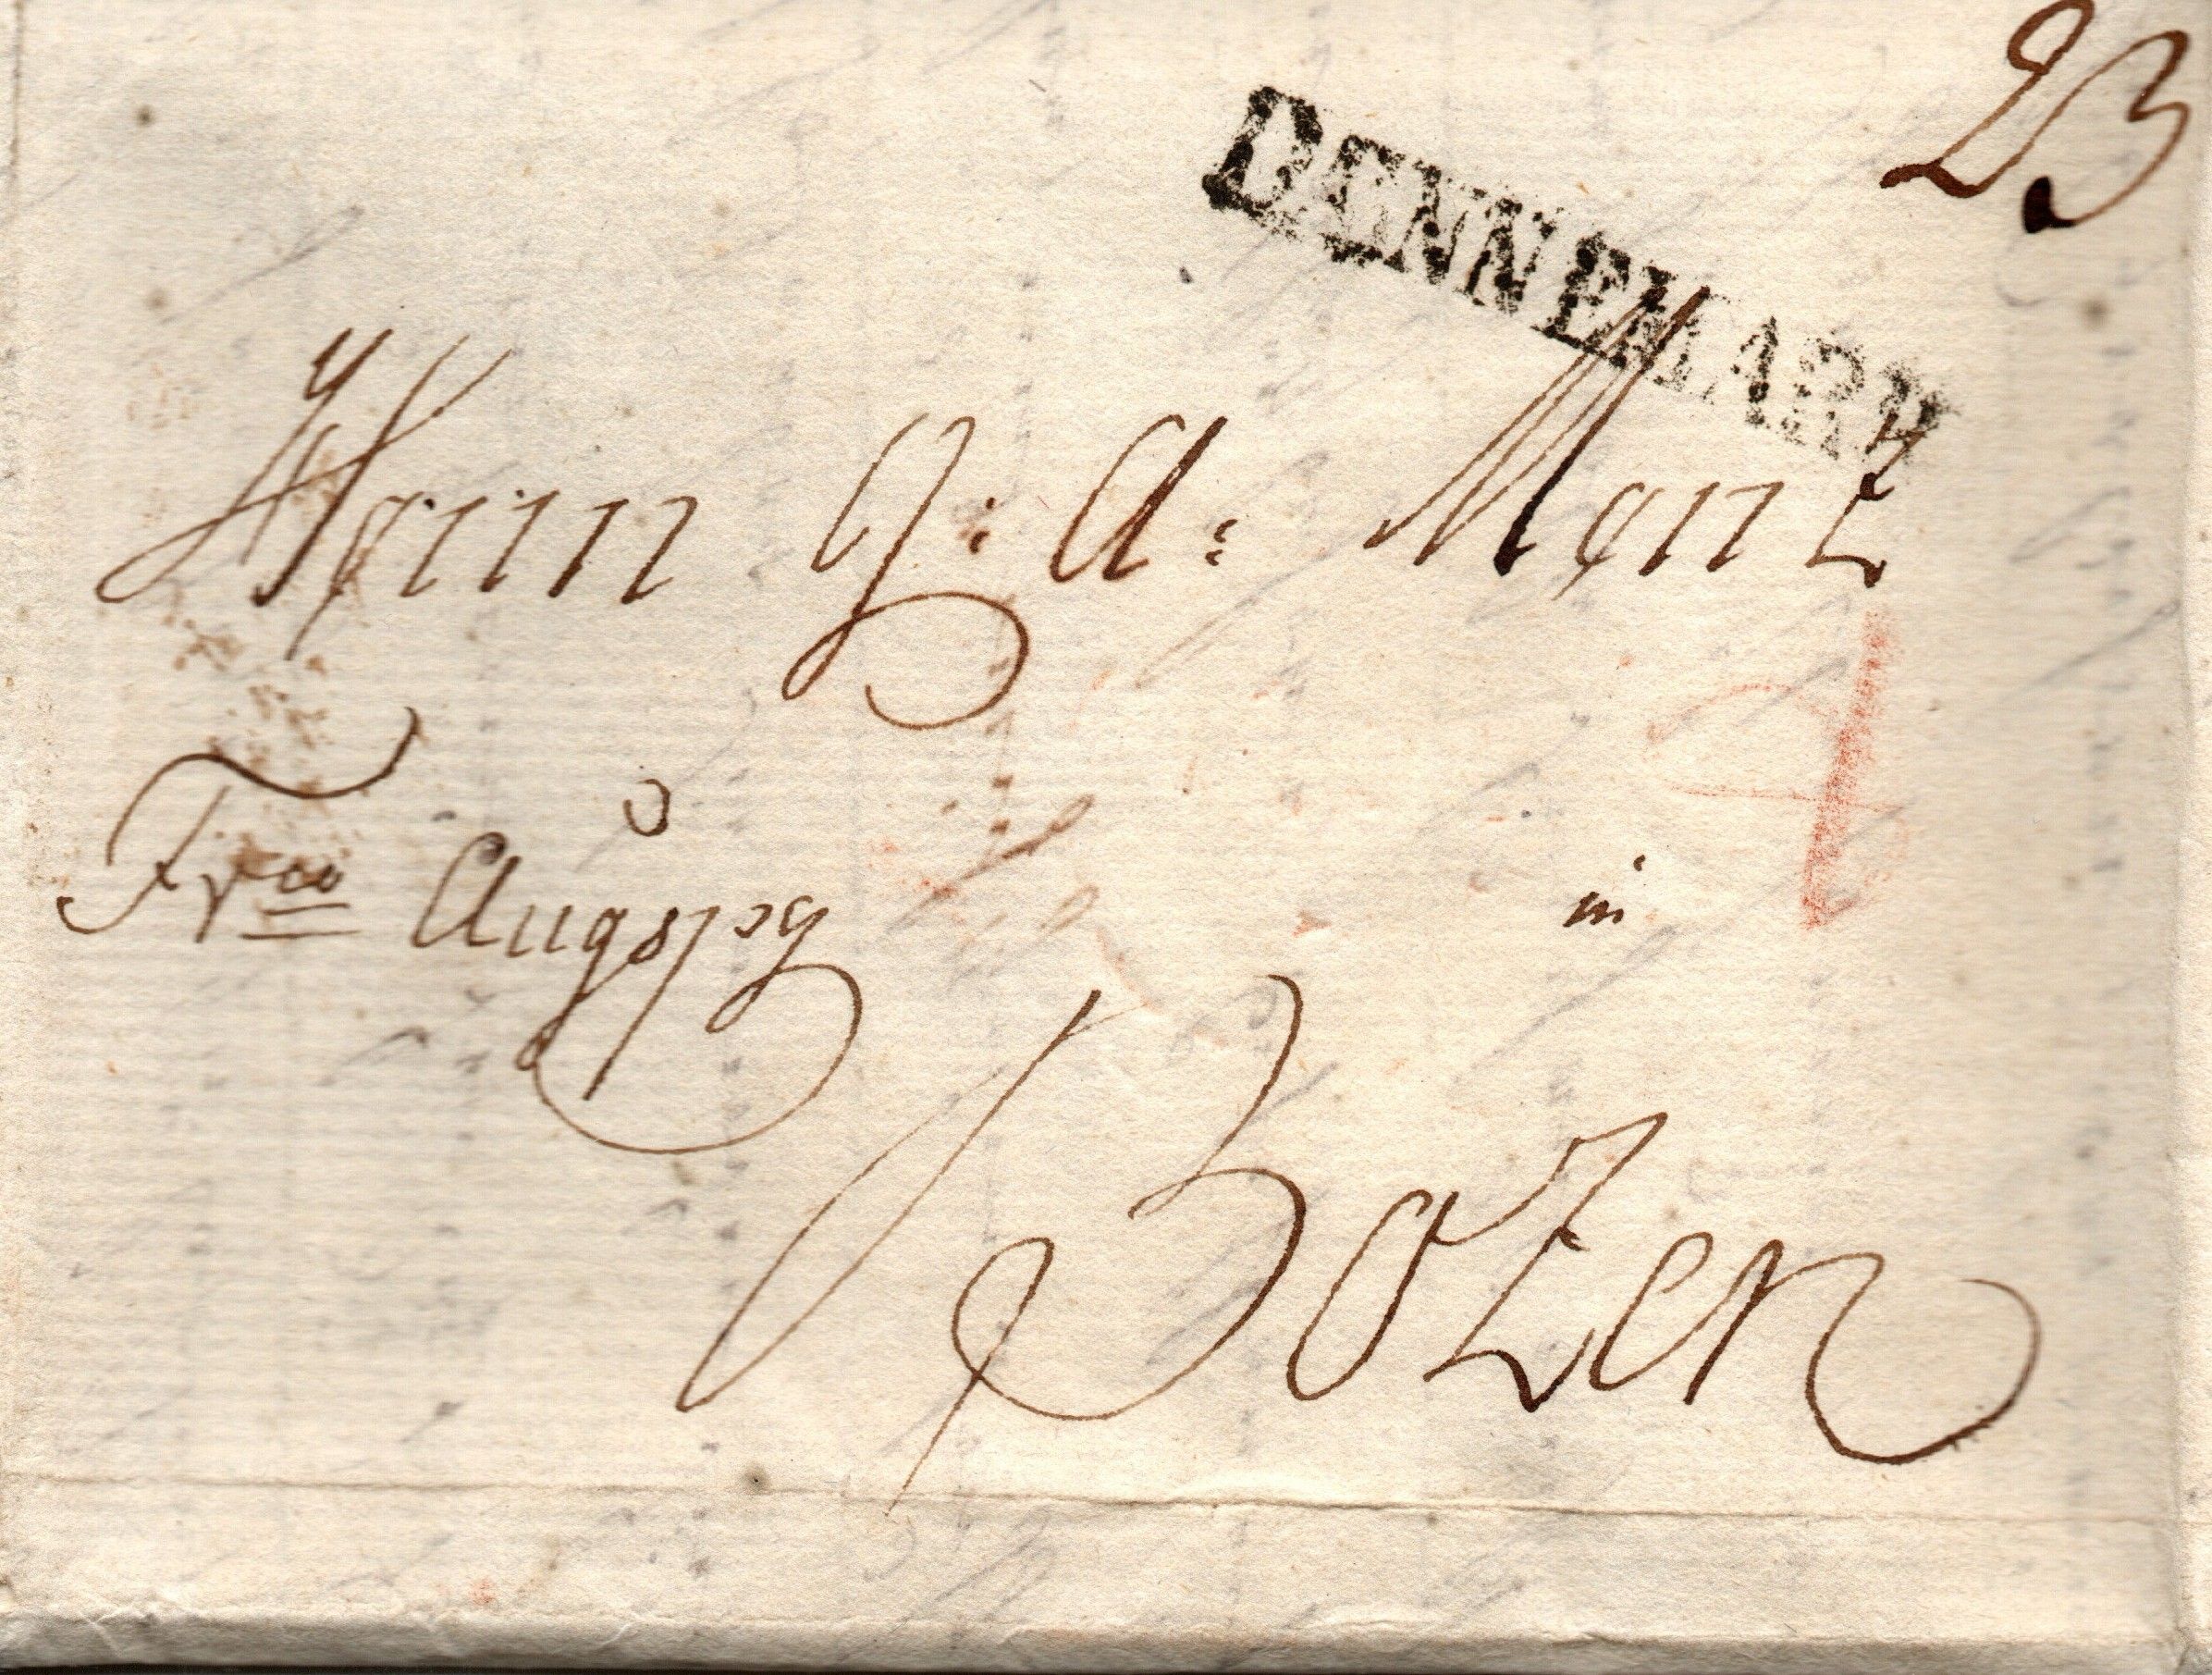 23
DENNEMARK
Herrn G: A: Menz
Frco Augspg
in
Botzen